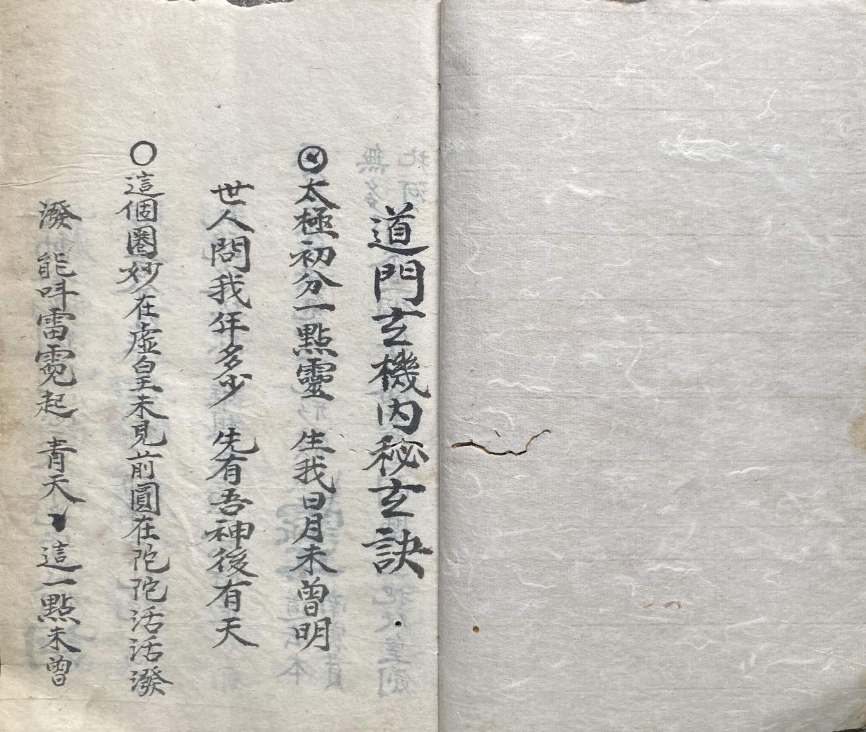 道門玄機內秘玄訣
太極初分一點靈 生我日月未曾明
世人問我年多少 先有吾神後有天
○這個圈妙在虛皇未見前圓在陀陀活活潑
潑 能叫雷霓起 青天 這一點未曾